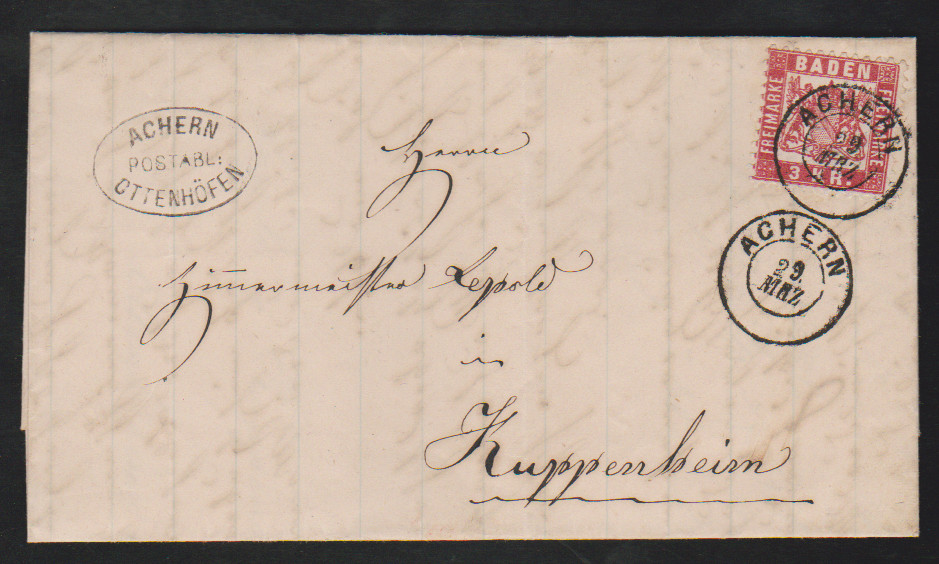 ACHERN
POSTABL:
OTTENHÖFEN
BADEN
FREIMARKE
3 KR.
ACHERN
29
MRZ
ACHERN
29
MRZ
Herrn
Zimmermeister Lepold
in
Kuppenheim